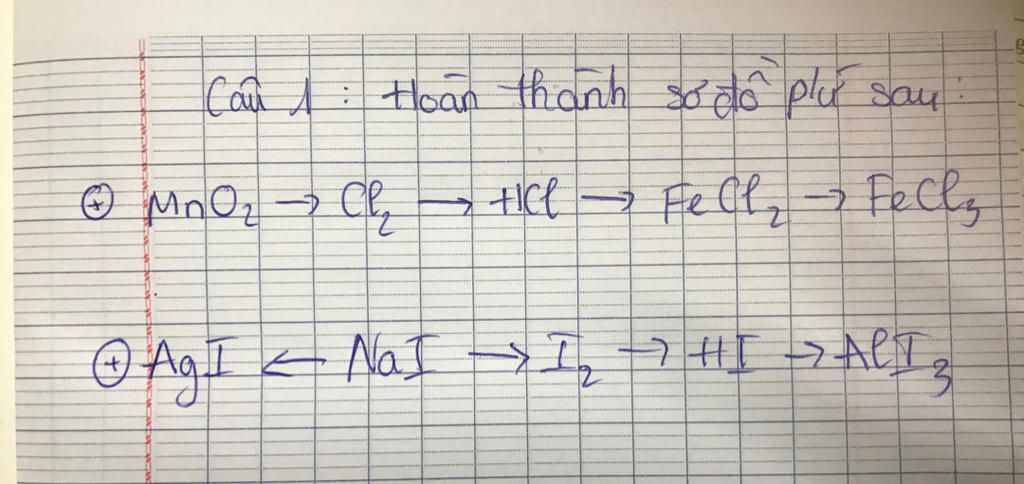 Câu 1 : Hoàn thành sơ đồ pứ sau :
⊕ MnO₂ → Cl₂ → HCl → FeCl₂ → FeCl₃
⊕ AgI ← NaI → I₂ → HI → AlI₃